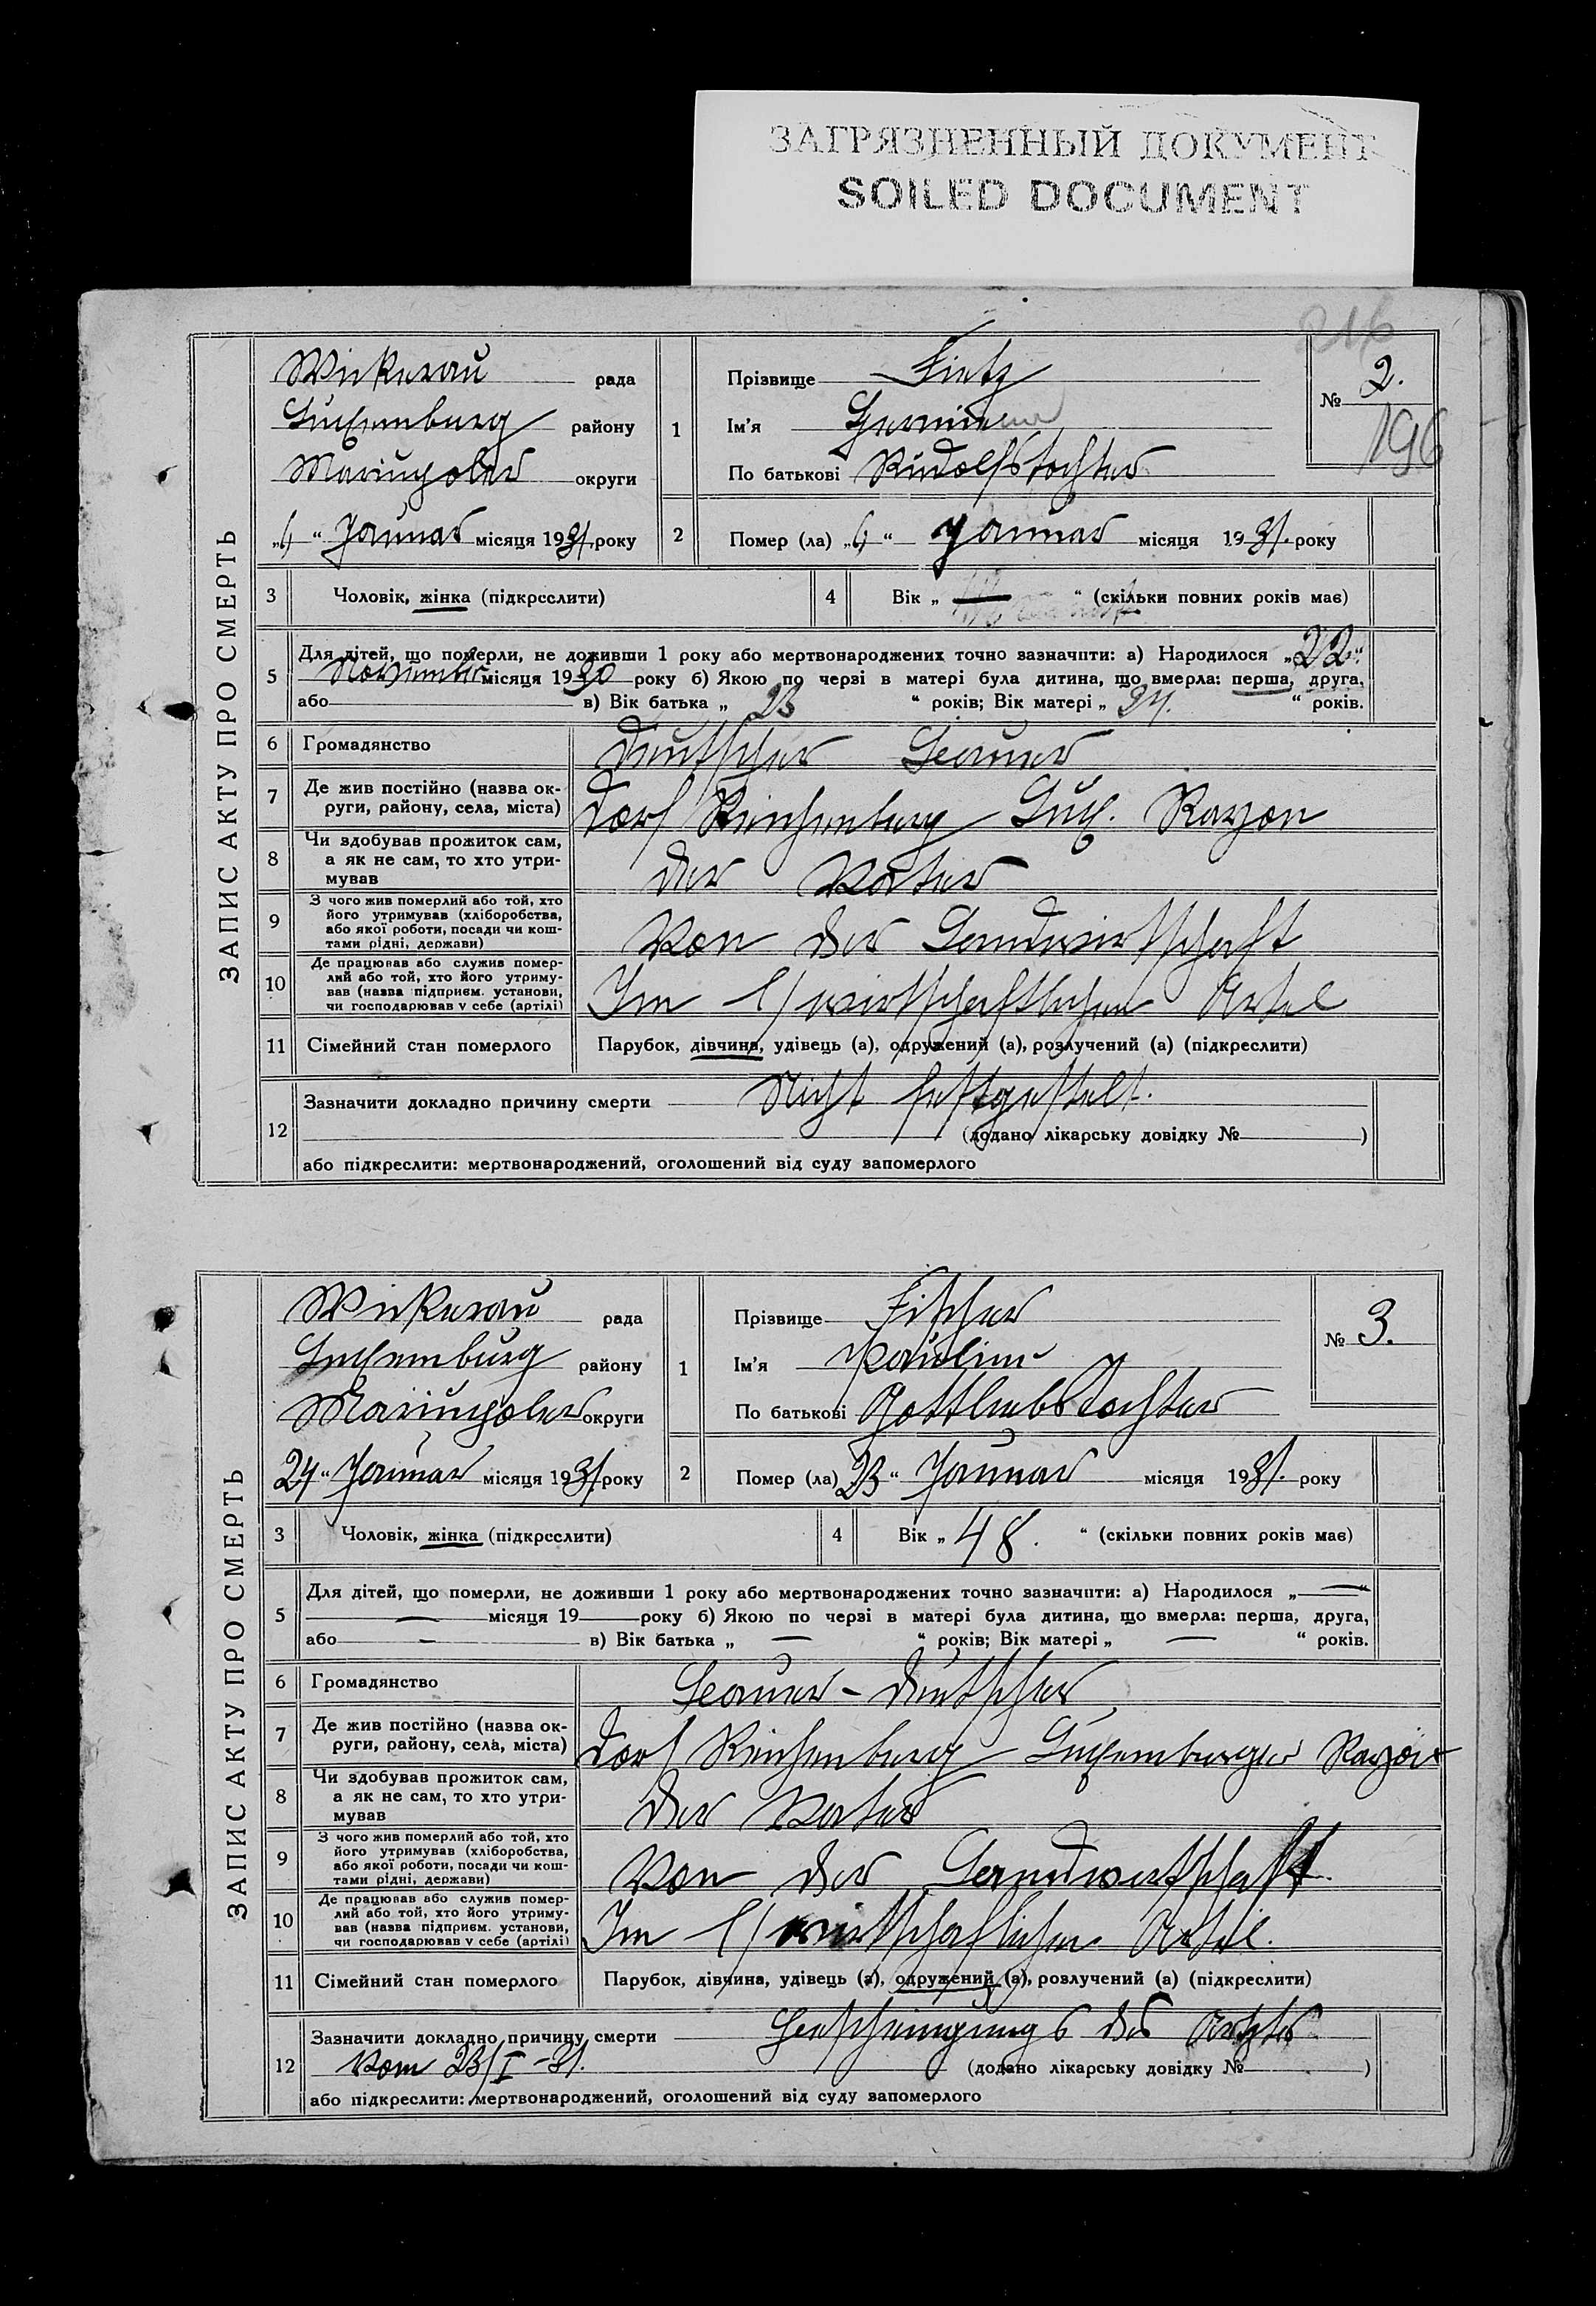 ЗАГРЯЗНЕННЫЙ ДОКУМЕНТ
SOILED DOCUMENT
216
ЗАПИС АКТУ ПРО СМЕРТЬ
Wickerau рада
Luxemburg району
Mariupoler округи
Januar місяця 1931. року
1
Прізвище Fietz
Ім'я
По батькові Rudolfstochter
№ 2.
196
2 Помер (ла) Januar місяця 1931. року
3 Чоловік, жінка (підкреслити)
4 Вік „ “ (скільки повних років має)
5 Для дітей, що померли, не доживши 1 року або мертвонароджених точно зазначити: а) Народилося „22“
November місяця 1930 року б) Якою по черзі в матері була дитина, що вмерла: перша, друга,
або в) Вік батька „ 23 “ років; Вік матері „ 24. “ років.
6 Громадянство Deutscher Bauer
7 Де жив постійно (назва ок-
руги, району, села, міста) Dorf Reichenberg Lux. Rayon
8 Чи здобував прожиток сам,
а як не сам, то хто утри-
мував der Vater
9 З чого жив померлий або той, хто
його утримував (хліборобства,
або якої роботи, посади чи кош-
тами рідні, держави) Von der Landwirtschaft
10 Де працював або служив помер-
лий або той, хто його утриму-
вав (назва підприєм. установи,
чи господарював у себе (артілі) Im l/wirtschaftlichen Artel
11 Сімейний стан померлого Парубок, дівчина, удівець (а), одружений (а), розлучений (а) (підкреслити)
12 Зазначити докладно причину смерти Nicht festgestelt.
(додано лікарську довідку № )
або підкреслити: мертвонароджений, оголошений від суду запомерлого
ЗАПИС АКТУ ПРО СМЕРТЬ
Wickerau рада
Luxemburg району
Mariupoler округи
24“ Januar місяця 1931. року
1
Прізвище Fischer
Ім'я Pauline
По батькові Gottliebstochter
№ 3.
2 Помер (ла) 23“ Januar місяця 1931. року
3 Чоловік, жінка (підкреслити)
4 Вік „ 48. “ (скільки повних років має)
5 Для дітей, що померли, не доживши 1 року або мертвонароджених точно зазначити: а) Народилося „—“
— місяця 19 року б) Якою по черзі в матері була дитина, що вмерла: перша, друга,
або — в) Вік батька „ — “ років; Вік матері „ — “ років.
6 Громадянство Bauer - Deutscher
7 Де жив постійно (назва ок-
руги, району, села, міста) Dorf Reichenberg Luxemburger Rayon
8 Чи здобував прожиток сам,
а як не сам, то хто утри-
мував der Vater
9 З чого жив померлий або той, хто
його утримував (хліборобства,
або якої роботи, посади чи кош-
тами рідні, держави) Von der Landwirtschaft.
10 Де працював або служив помер-
лий або той, хто його утриму-
вав (назва підприєм. установи,
чи господарював у себе (артілі) Im l/wirtschaftlichen Artel.
11 Сімейний стан померлого Парубок, дівчина, удівець (а), одружений (а), розлучений (а) (підкреслити)
12 Зазначити докладно причину смерти des Arztes
vom 23/I-31.
(додано лікарську довідку № )
або підкреслити: мертвонароджений, оголошений від суду запомерлого